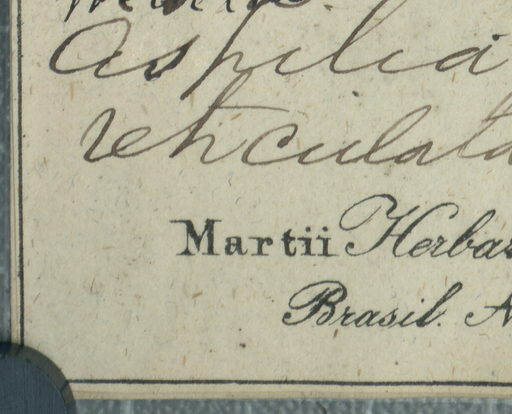 Aspilia
reticulata
Martii Herbar
Brasil.